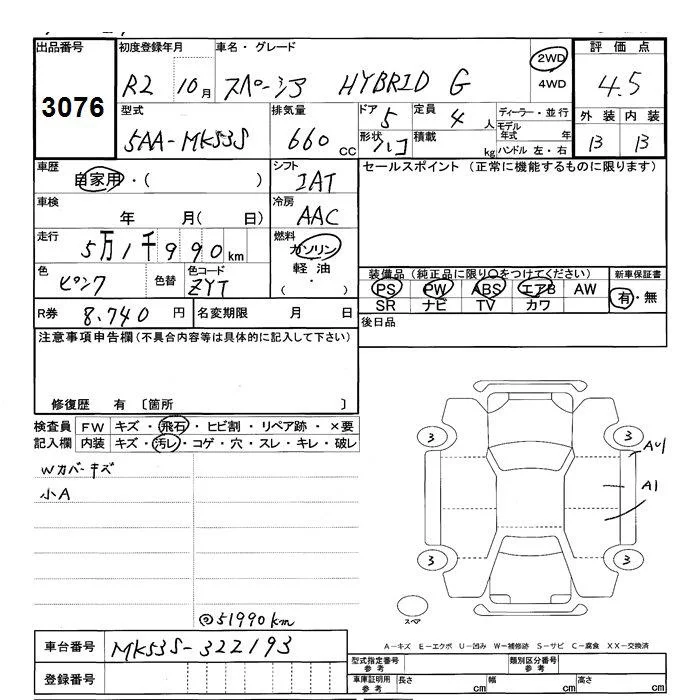 出品番号 初度登録年月 車名・グレード 評価点
3076 R2 10月 スペーシア HYBRID G 2WD 4WD 4.5
型式 排気量 ドア 定員 ディーラー・並行 外装 内装
5AA-MK53S 660cc 5 4人 モデル年式 年 B B
形状 積載 kg ハンドル 左・右
車歴 自家用・( ) シフト IAT セールスポイント (正常に機能するものに限ります)
車検 年 月( 日) 冷房 AAC
走行 5万1千990km 燃料 ガソリン 軽油 ( ・ )
色 ピンク 色替 色コード ZYT
装備品 (純正品に限り○をつけてください) 新車保証書
PS PW ABS エアB AW 有・無
SR ナビ TV カワ
R券 8.740円 名変期限 月 日 後日品
注意事項申告欄(不具合内容等は具体的に記入して下さい)
修復歴 有 〔箇所 〕
検査員 FW キズ・飛石・ヒビ割・リペア跡・×要
記入欄 内装 キズ・汚レ・コゲ・穴・スレ・キレ・破レ
Wカバーキズ
小A
3 3
A1
3 3
スペア
51990km
A-キズ E-エクボ U-凹み W-補修跡 S-サビ C-腐食 XX-交換済
車台番号 MK53S-322193
登録番号
型式指定番号 参考 類別区分番号 参考
車庫証明用 参考 長さ cm 幅 cm 高さ cm